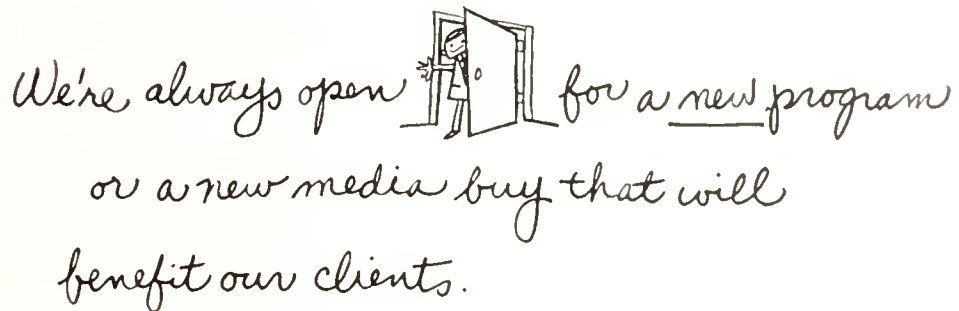 We're always open for a new program
or a new media buy that will
benefit our clients.